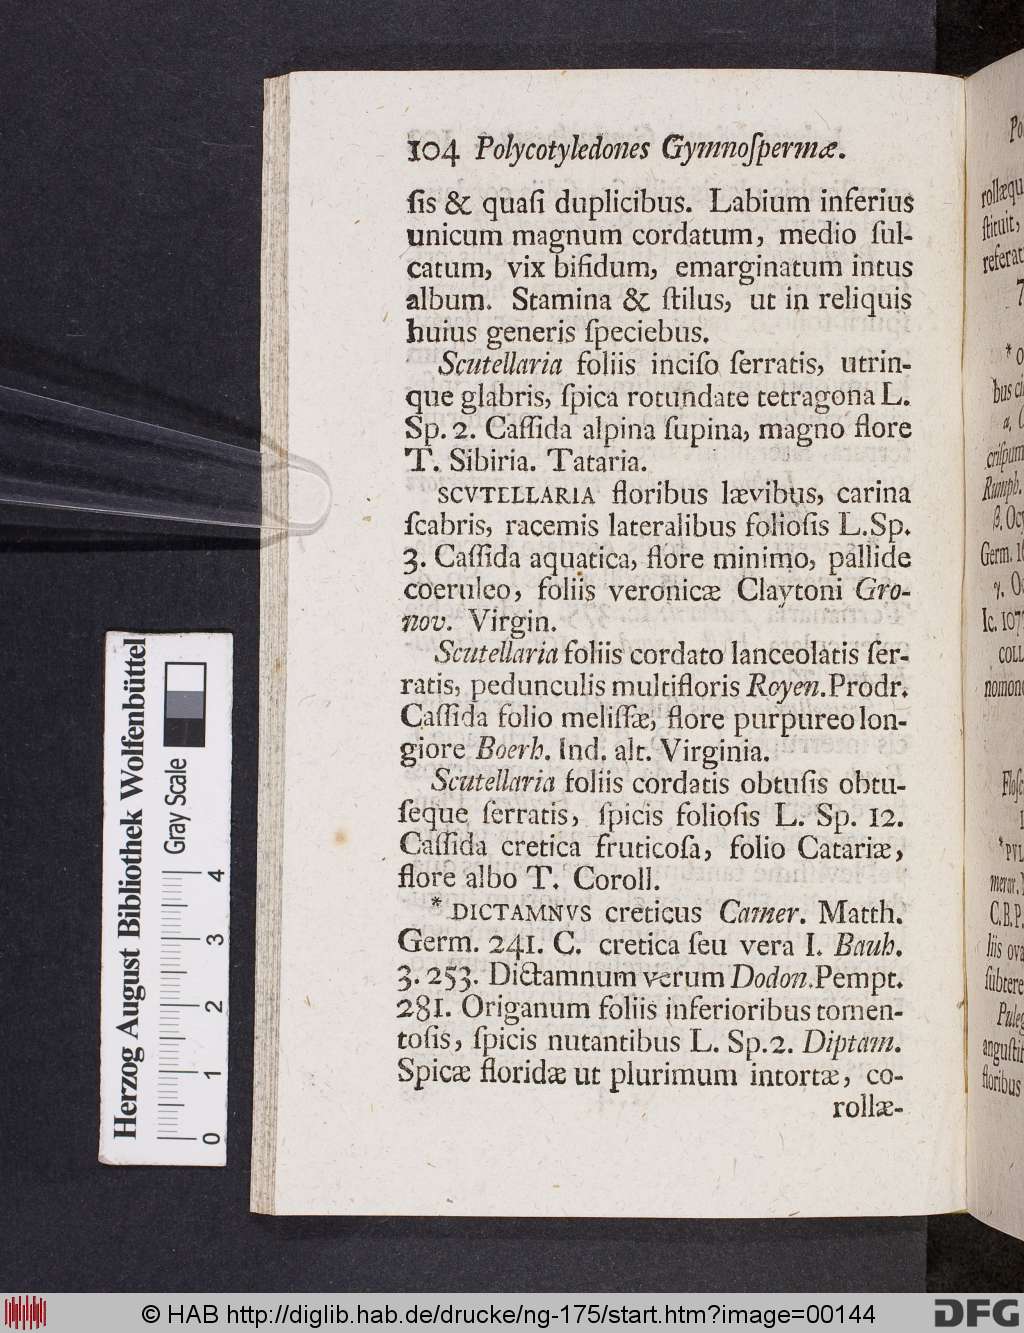 104 Polycotyledones Gymnoſpermæ.
ſis & quaſi duplicibus. Labium inferius
unicum magnum cordatum, medio ſul-
catum, vix bifidum, emarginatum intus
album. Stamina & ſtilus, ut in reliquis
huius generis ſpeciebus.
Scutellaria foliis inciſo ſerratis, utrin-
que glabris, ſpica rotundate tetragona L.
Sp. 2. Caſſida alpina ſupina, magno flore
T. Sibiria. Tataria.
SCVTELLARIA floribus lævibus, carina
ſcabris, racemis lateralibus folioſis L.Sp.
3. Caſſida aquatica, flore minimo, pallide
coeruleo, foliis veronicæ Claytoni Gro-
nov. Virgin.
Scutellaria foliis cordato lanceolatis ſer-
ratis, pedunculis multifloris Royen. Prodr.
Caſſida folio meliſſæ, flore purpureo lon-
giore Boerh. Ind. alt. Virginia.
Scutellaria foliis cordatis obtuſis obtu-
ſeque ſerratis, ſpicis folioſis L. Sp. 12.
Caſſida cretica fruticoſa, folio Catariæ,
flore albo T. Coroll.
* DICTAMNVS creticus Camer. Matth.
Germ. 241. C. cretica ſeu vera I. Bauh.
3. 253. Dictamnum verum Dodon. Pempt.
281. Origanum foliis inferioribus tomen-
toſis, ſpicis nutantibus L. Sp. 2. Diptam.
Spicæ floridæ ut plurimum intortæ, co-
rollæ-
Po
rollæqu
ſtituit,
referat
7
* O
bus ci
α. C
criſpum
Rumph.
β. Oc
Germ. 16
γ. O
Ic. 107
COLL
nomon
Floſc
* PVL
C.B.P.
liis ova
ſubtere
Puleg
anguſtif
floribus
Herzog August Bibliothek Wolfenbüttel
Gray Scale
0 1 2 3 4
© HAB http://diglib.hab.de/drucke/ng-175/start.htm?image=00144
DFG